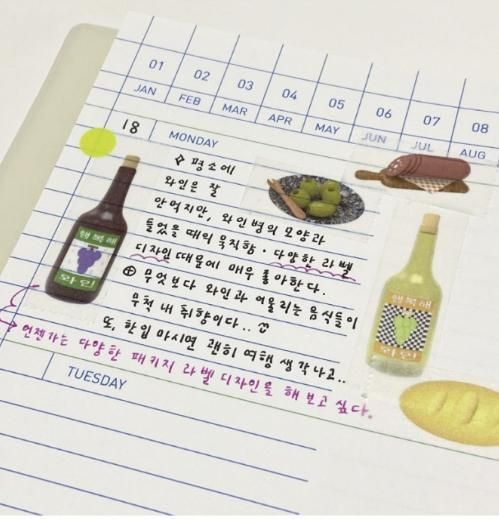 01 02 03 04 05 06 07 08
JAN FEB MAR APR MAY JUN JUL AUG
18 MONDAY
평소에
와인은 잘
안먹지만, 와인병의 모양과
들었을 때의 묵직함 · 다양한 라벨
디자인 때문에 매우 좋아한다.
⊕ 무엇보다 와인과 어울리는 음식들이
무척 내 취향이다..
또, 한입 마시면 괜히 여행 생각나고..
언젠가는 다양한 패키지 라벨 디자인을 해 보고 싶다.
행복해
와인
행복해
와인
TUESDAY